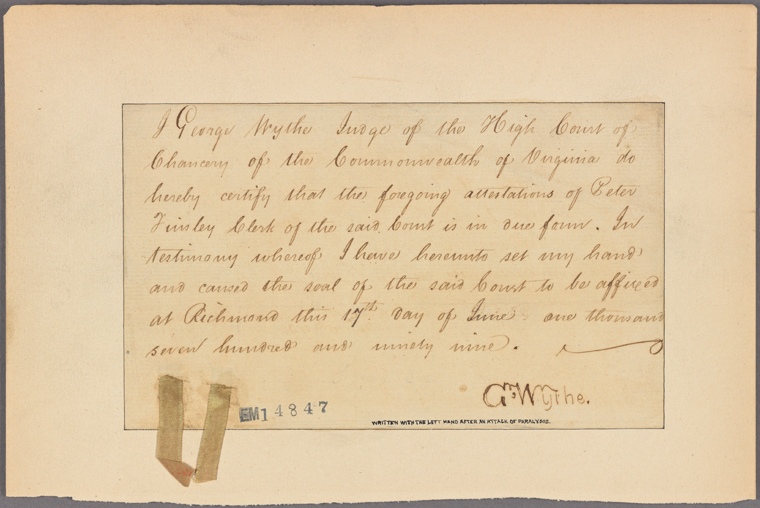 I George Wythe Judge of the High Court of
Chancery of the Commonwealth of Virginia do
hereby certify that the foregoing attestations of Peter
Tinsley Clerk of the said Court is in due form. In
testimony whereof I have hereunto set my hand
and caused the seal of the said Court to be affixed
at Richmond this 17th day of June one thousand
seven hundred and ninety nine.
G. Wythe.
EM14847
WRITTEN WITH THE LEFT HAND AFTER AN ATTACK OF PARALYSIS.